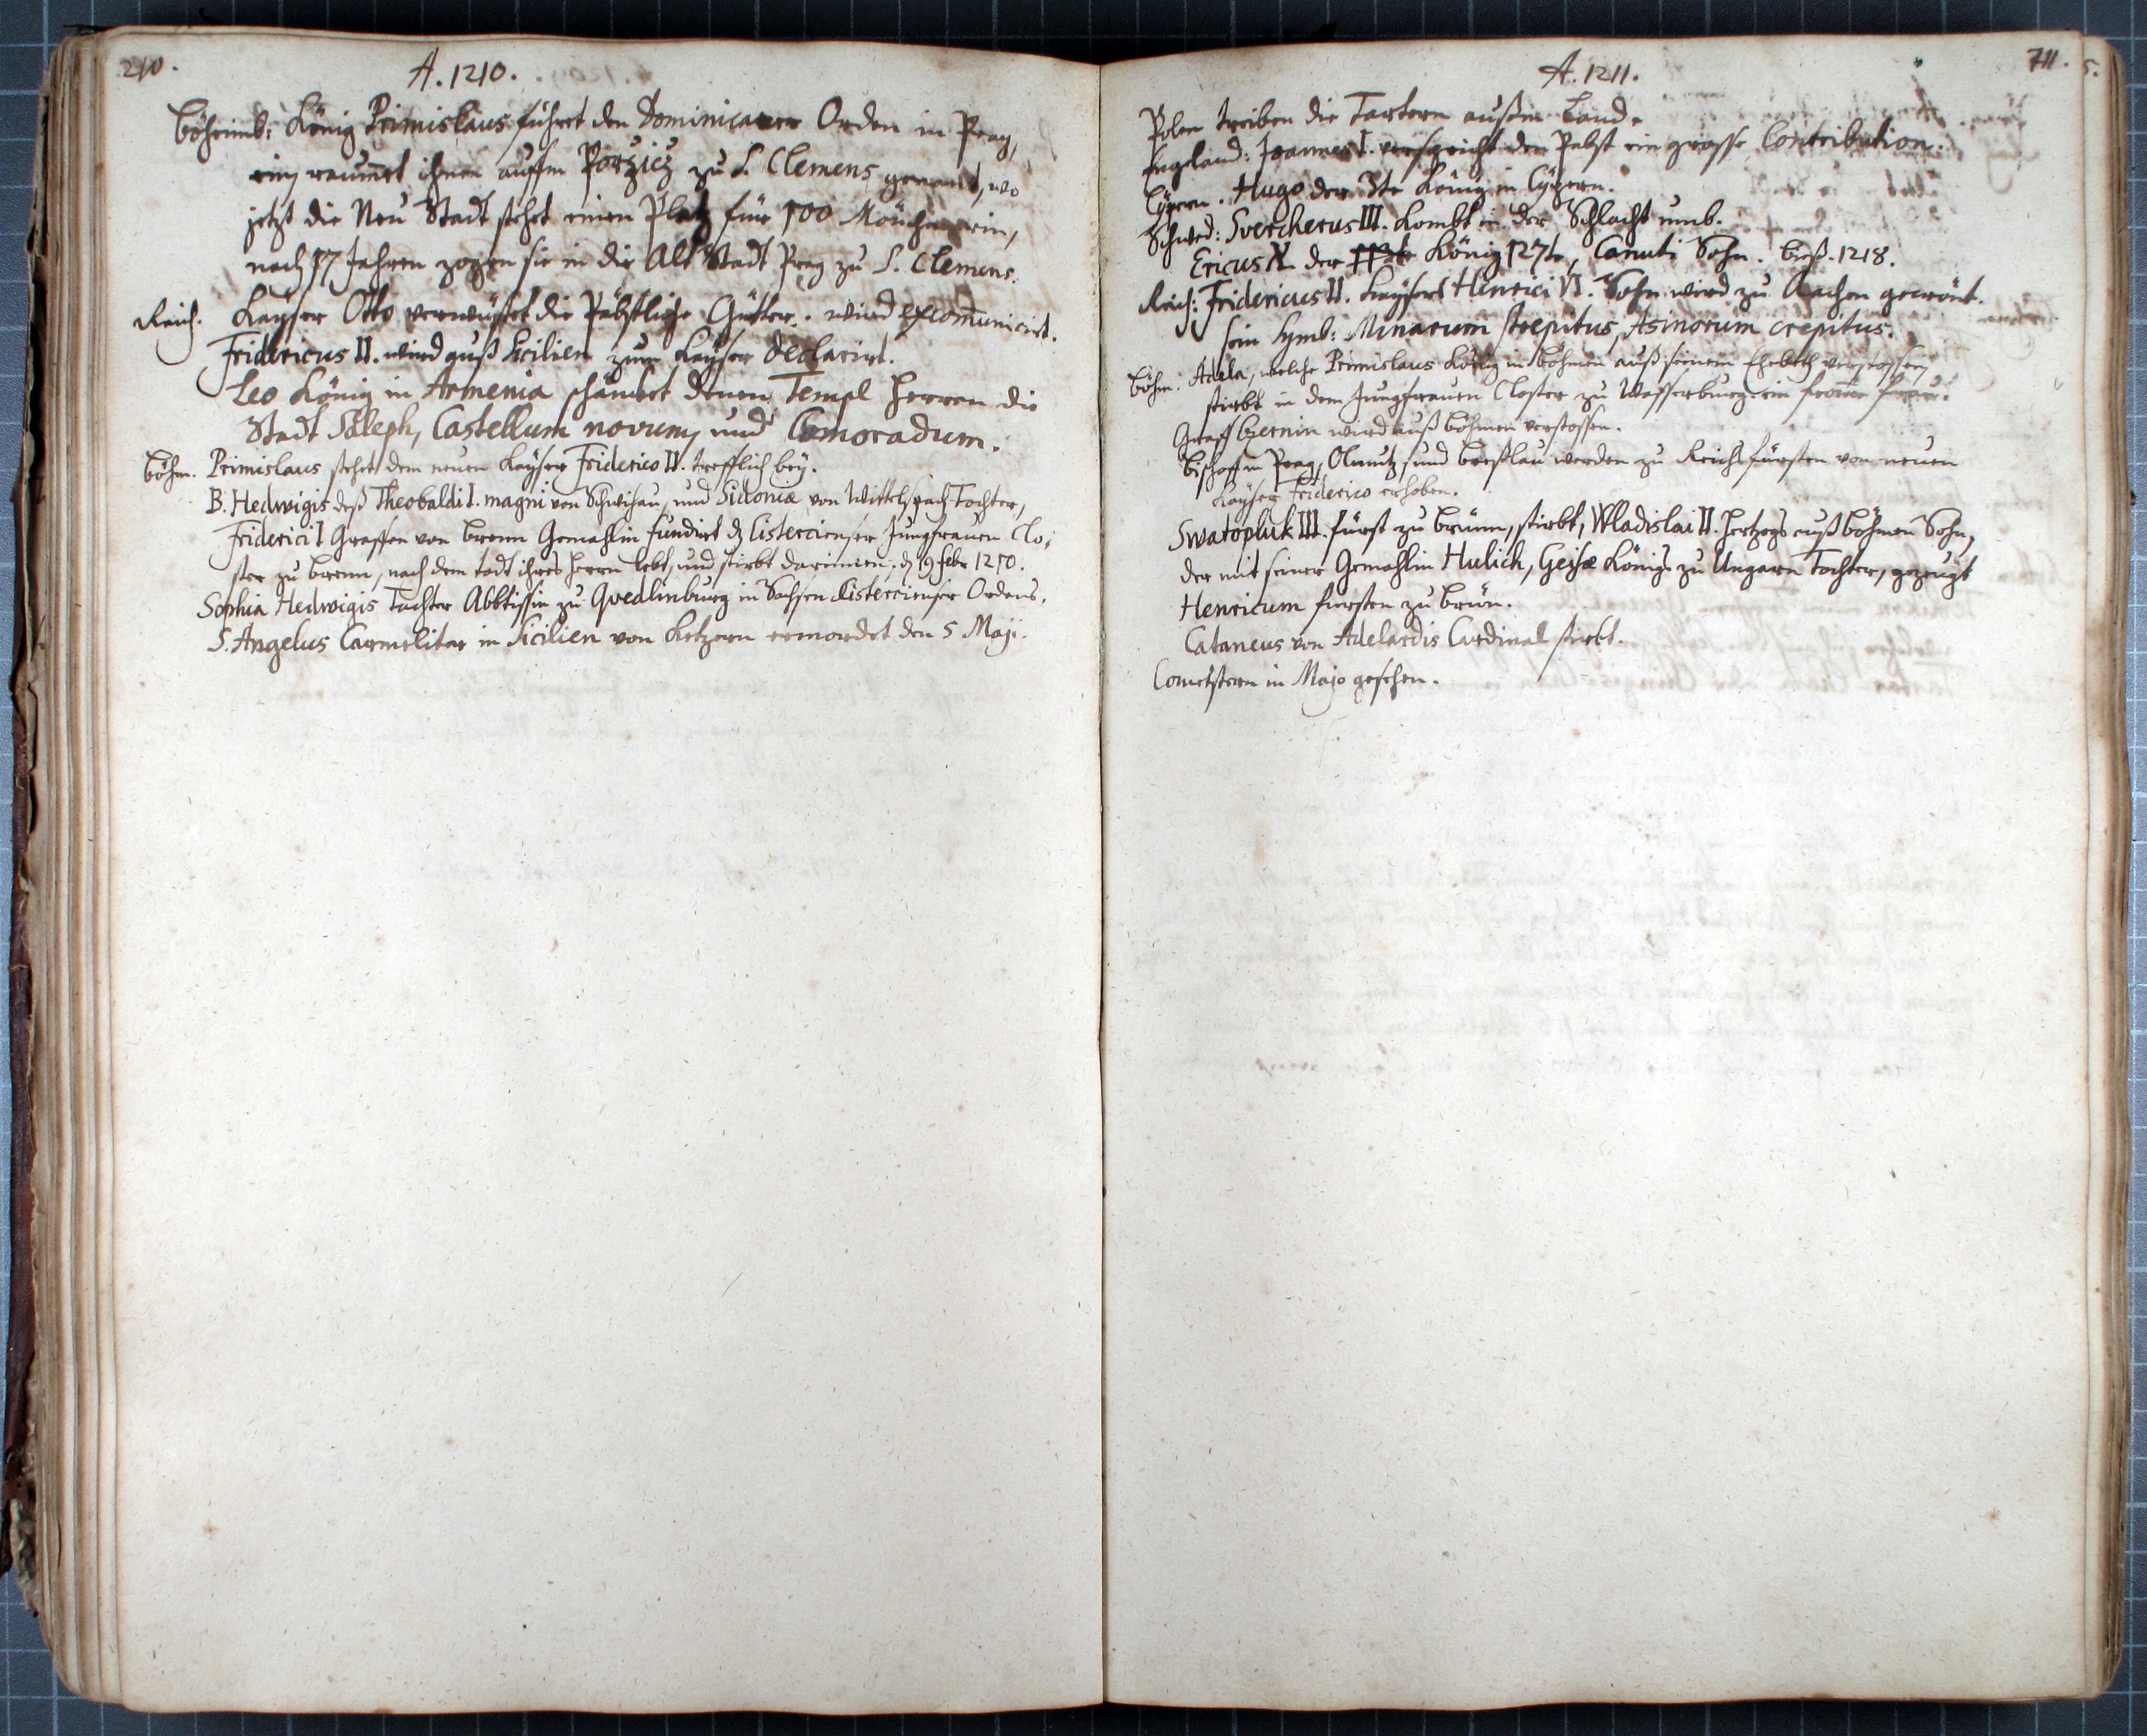 210.
A. 1210.
Böheimb: König Primislaus führet den Dominicaner Orden in Prag,
ein, raumet ihnen auffm Porzicz zu S. Clemens genant, wo
jetzt die Neu Stadt stehet einen Platz für 100 Mönchen ein,
nach 17 Jahren zogen sie in die Alt Stadt Prag zu S. Clemens.
Reich. Kayser Otto verwüstet die Päbstliche Gütter. wird excom̃unicirt.
Fridericus II. wird auß Sicilien zum Kayser declarirt.
Leo König in Armenia schäncket denen Templ Herren die
Stadt Saleph, Castellum novum, und Camoradum.
Böhm. Primislaus stehet dem neuen Kayser Friderico II. trefflich bey.
B. Hedwigis deß Theobaldi I. magni von Schwihau, und Sidoniæ von Wittelspach Tochter,
Friderici I Graffen von Brenn Gemahlin fundirt dz Cistercienser Jungfrauen Clo:
ster zu Brenn, nach dem todt ihres Herrn lebt, und stirbt darinnen, dz 19 Febr 1210.
Sophia Hedwigis Tochter Abbtissin zu Qvedlinburg in Sachsen Cistercienser Ordens.
S. Angelus Carmelitar in Sicilien von Ketzern ermordet den 5 Maji.
A. 1211.
711.
5.
Polen treiben die Tartern außm Land.
Engeland: Joannes I. verspricht dem Pabst ein grosse Contribution.
Cÿpern. Hugo der 3te König in Cÿpern.
Schwed: Svercherus III. kombt in der Schlacht umb.
Ericus X. der König 127te, Canuti Sohn. biß. 1218.
Reich: Fridericus II. Kaysers Henrici VI. Sohn wird zu Aachen gecrönt.
sein Symb: Minarum strepitus, Asinorum crepitus.
Böhm: Adela, welche Primislaus König in Böhmen auß seinem Ehebeth verstossen,
stirbt in dem Jungfrauen Closter zu Wasserburg ein from̃e
Graff Czernin wird auß Böhmen verstossen.
Bischoff in Prag, Olmutz, und Breßlau werden zu Reichsfürsten von neuen
Kayser Friderico erhoben.
Swatopluk III. fürst zu Brünn, stirbt, Wladislai II. Hertzogs auß Böhmen Sohn,
der mit seiner Gemahlin Hulich, Geisæ Königs zu Ungarn Tochter, gezeugt
Henricum fursten zu Brün.
Cataneus von Adelardis Cardinal stirbt.
Cometstern in Majo gesehen.